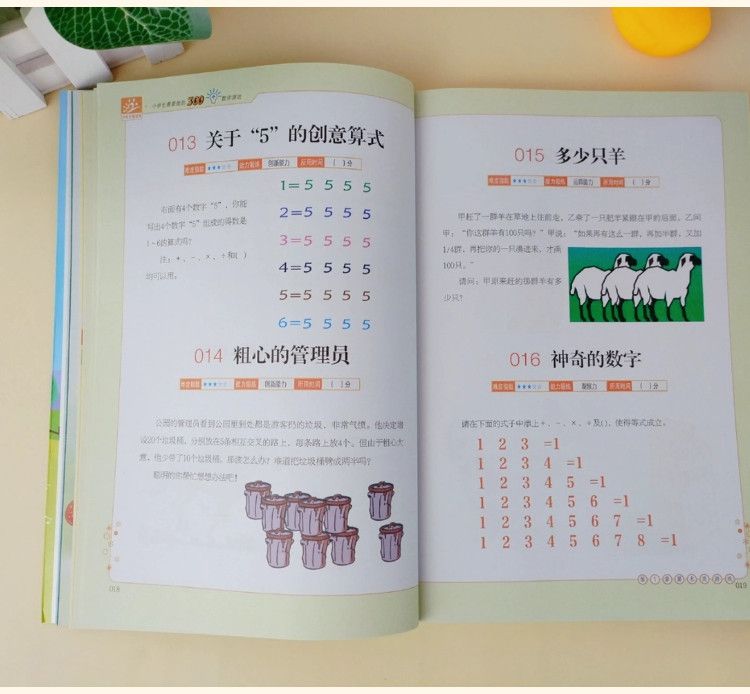 小学生最喜爱的300个数学游戏
013 关于“5”的创意算式
难度指数 ★★★☆☆ 能力锻炼 创新能力 所用时间 ( )分
右面有4个数字“5”，你能
写出4个数字“5”组成的得数是
1～6的算式吗？
注：+、-、×、÷和( )
均可以用。
1=5 5 5 5
2=5 5 5 5
3=5 5 5 5
4=5 5 5 5
5=5 5 5 5
6=5 5 5 5
014 粗心的管理员
难度指数 ★★★☆☆ 能力锻炼 创新能力 所用时间 ( )分
公园的管理员看到公园里到处都是游客扔的垃圾，非常气愤。他决定增
设20个垃圾桶，分别放在5条相互交叉的路上，每条路上放4个。但由于粗心大
意，他少带了10个垃圾桶，那该怎么办？难道把垃圾桶劈成两半吗？
聪明的你帮忙想想办法吧！
018
015 多少只羊
难度指数 ★★★☆☆ 能力锻炼 运算能力 所用时间 ( )分
甲赶了一群羊在草地上往前走，乙牵了一只肥羊紧跟在甲的后面。乙问
甲：“你这群羊有100只吗？”甲说：“如果再有这么一群，再加半群，又加
1/4群，再把你的一只凑进来，才满
100只。”
请问：甲原来赶的那群羊有多
少只？
016 神奇的数字
难度指数 ★★★☆☆ 能力锻炼 所用时间 ( )分
请在下面的式子中添上+、-、×、÷及()，使得等式成立。
1 2 3 =1
1 2 3 4 =1
1 2 3 4 5 =1
1 2 3 4 5 6 =1
1 2 3 4 5 6 7 =1
1 2 3 4 5 6 7 8 =1
019